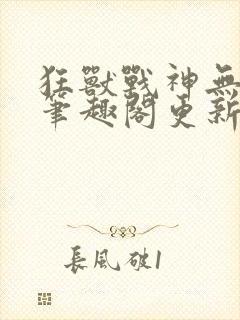 狂獸戰神無
筆趣閣更新
長風破1